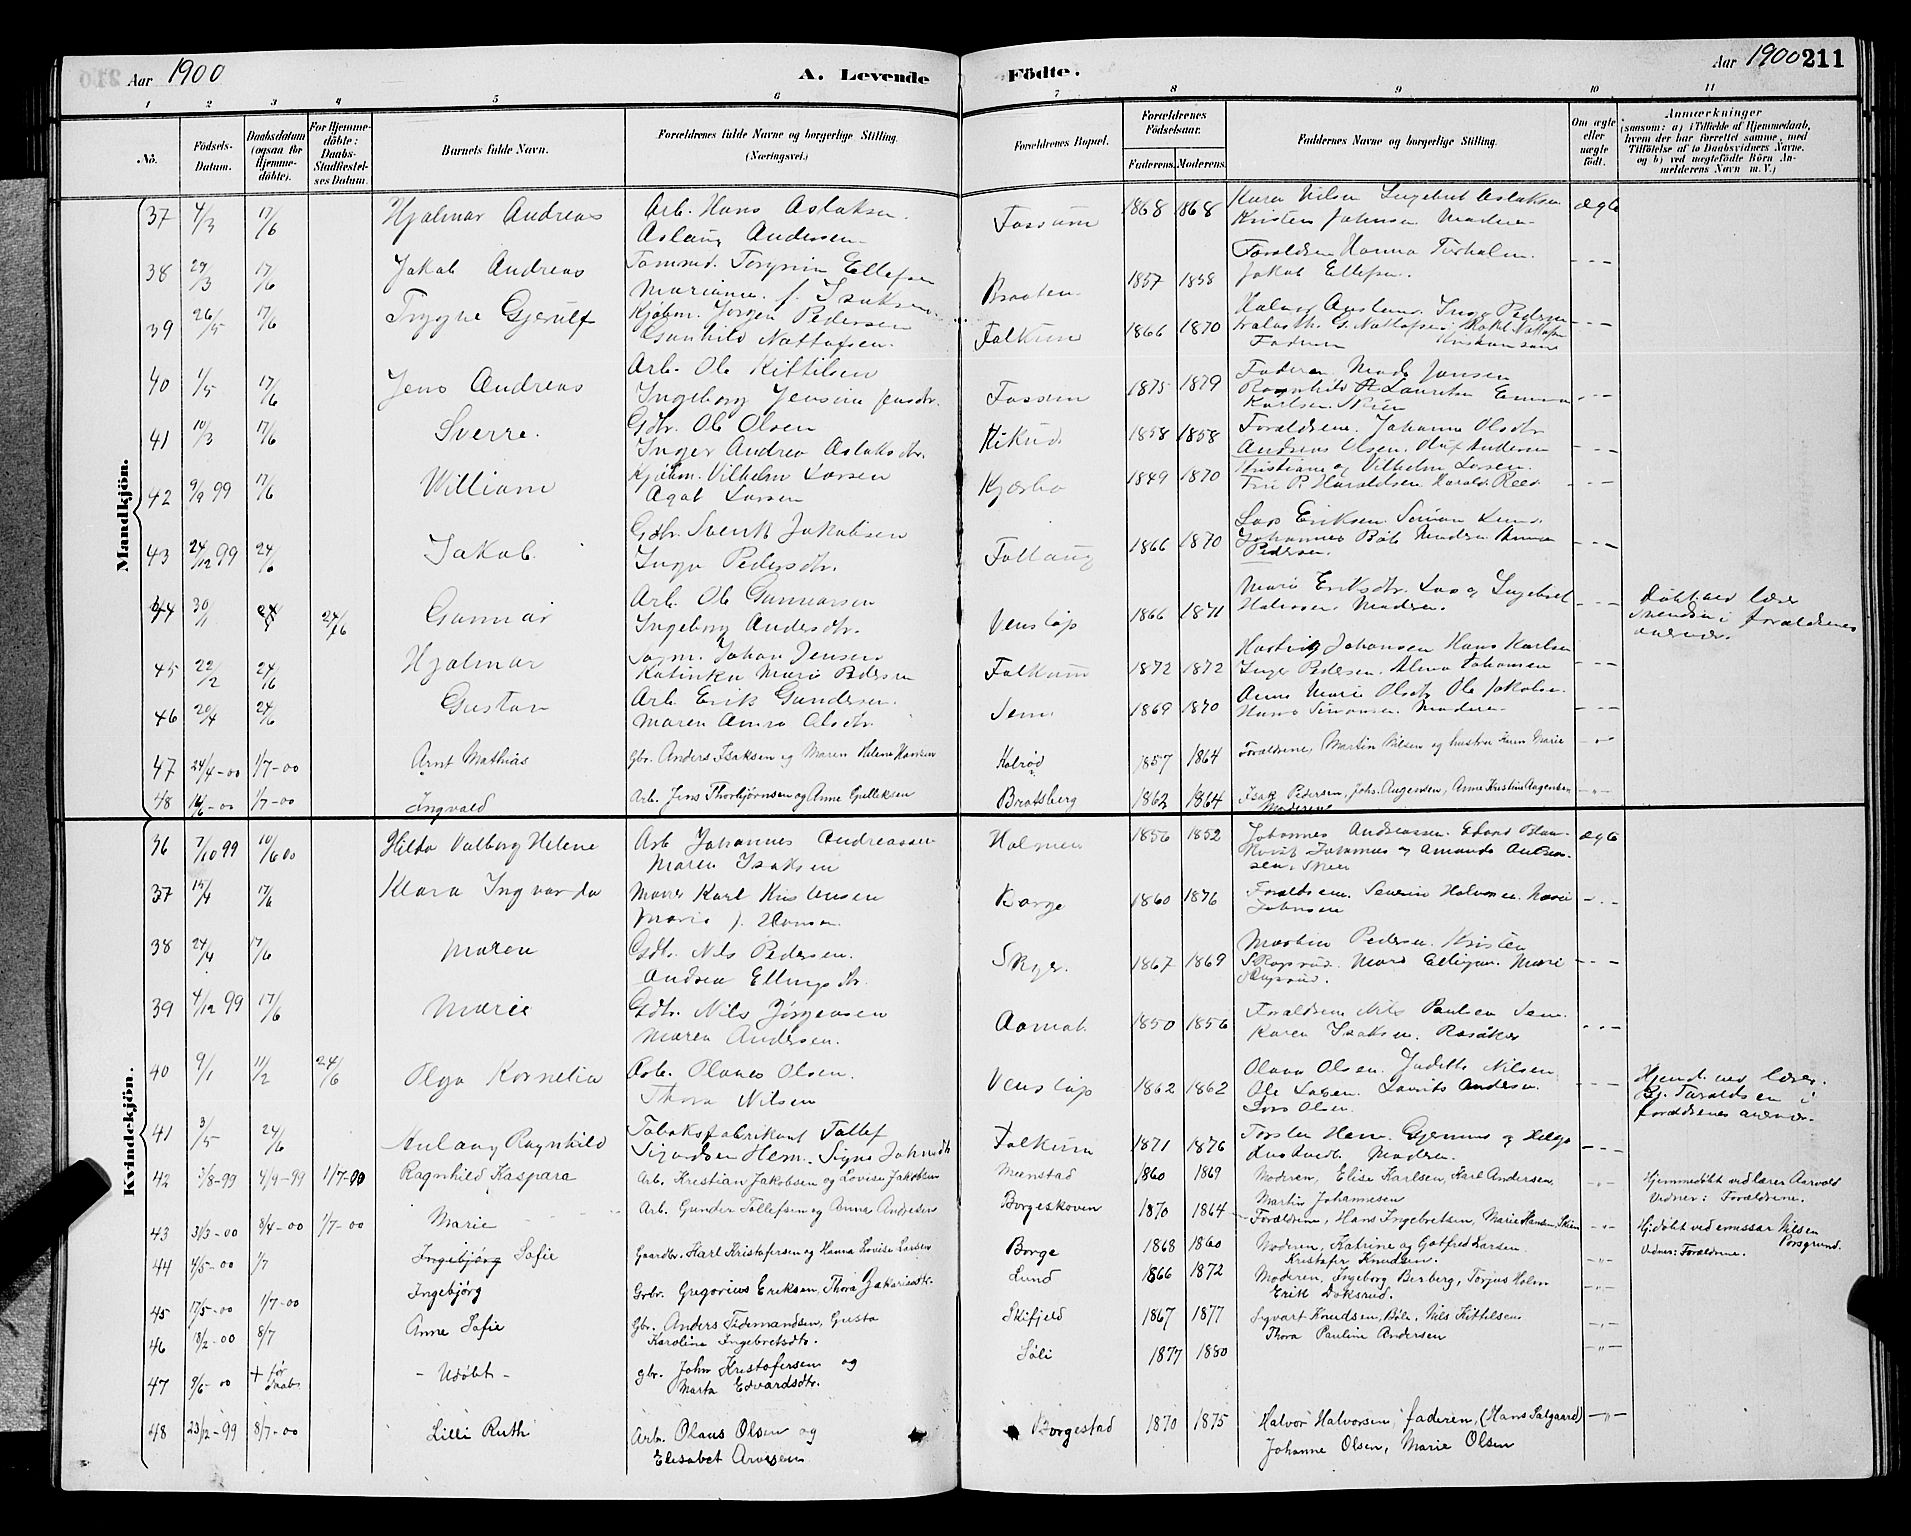 Aar 1900
A. Levende Födte.
Aar 1900 211
1 2 3 4 5 6 7 8 9 10 11
No.
Födsels-Datum.
Daabsdatum (ogsaa for Hjemme-döbte).
For Hjemme-döbte: Daabs-Stadfæstel-ses Datum.
Barnets fulde Navn.
Forældrenes fulde Navne og borgerlige Stilling. (Næringsvei.)
Forældrenes Bopæl.
Forældrenes Födselsaar.
Faderens. Moderens.
Faddernes Navne og borgerlige Stilling.
Om ægte eller uægte födt.
Anmærkninger
(saasom: a) i Tilfælde af Hjemmedaab, hvem der har forrettet samme, med Tilföielse af to Daabsvidners Navne, og b) ved uegtefödte Börn Anmelderens Navn m. V.)
Mandkjön.
37 4/3 17/6 Hjalmar Andreas Arb. Hans Aslaksen Fossum 1868 1868 Karen Nilsen Ingebret Aslaksen ægte
Aslaug Andersen Kristen Johnsen Moderen
38 29/3 17/6 Jakob Andreas Ellefsen Braaten 1857 1858 Forældrene Hanna
Mariane f. Isaksen Jakob Ellefsen
39 26/5 17/6 Trygve Gjerulf Kjøbm. Jørgen Pedersen Falkum 1866 1870
Gunhild Nattofsen
40 1/5 17/6 Jens Andreas Arb. Ole Kittilsen Fossum 1875 1879 Faderen Mads Jansen
Ingeborg Jensine Jensdtr. Ragnhild Lauritsen Emma Karlsen Skien
41 10/3 17/6 Sverre. Gdbr. Ole Olsen 1858 1858 Forældrene. Johanne Olsdtr
Inger Andrea Aslaksdtr. Andreas Olsen. Olaf Andersen
42 9/9 99 17/6 William Kjøbm. Vilhelm Larsen Kjærbo 1849 1870 Kristiane og Vilhelm Larsen.
Agat Larsen
43 24/12 99 24/6 Jakob. Gdbr. Jakobsen 1866 1870 Lars Eriksen
Inga Pedersdtr. Johannes Bøle Moderen Anna Pedersen.
44 30/1 24/6 Gunnar Arb. Ole Gunnarsen Venstøp 1866 1871 Maria Eriksdtr. Lars og Ingebret
Ingeborg Andersdtr. Halvorsen Moderen. Døbt ved lærer Svendsen i forældrenes nærvær.
45 22/2 24/6 Hjalmar Johan Jensen Falkum 1872 1872 Hartvig Johansen Hans Karlsen
Katinka Marie Pedersen Inger Pedersen. Alma Johansen
46 20/4 24/6 Gustav Arb. Erik Gundersen Sem 1869 1870 Anne Marie Olsdtr Ole Jakobsen
Maren Anna Olsdtr. Hans Simonsen Moderen
47 24/4-00 1/7-00 Arnt Mathias Gbr. Anders Isaksen og Maren Helene Hansen Holrød 1857 1864 Forældrene, Martin Nilsen og hustru Karen Marie
48 16/6-00 1/7-00 Ingvald Arb. Jens Thorbjørnsen og Anne Gulleksen Bratsberg 1862 1864 Isak Pedersen, Johs. Aagensen, Anne Kristine Aagensen Moderen
Kvindekjön.
36 7/10 99 10/6 00 Hilda Valborg Helene Arb Johannes Andreassen Holmen 1856 1852 Johannes Andreassen ægte
Maren Isaksen Johannes og Amanda Andreassen, Skien
37 15/4 17/6 Klara Ingvarda Murer Karl Kristensen Borge 1860 1876 Forældrene. Severin Halvorsen. Marie Johnsen
Marie f. Hansen
38 24/4 17/6 Maren Gdbr. Nils Pedersen. 1867 1869 Martin Pedersen. Kristen
Andrea Ellingsdtr.
39 4/12 99 17/6 Marie Gdbr. Nils Jörgensen Aamot 1850 1856 Forældrene Nils Paulsen Sem
Maren Andersen. Karen Isaksen. Rosaker
40 9/1 11/2 24/6 Olga Kornelia Arb. Olaves Olsen. Venstøp 1862 1862 Olava Olsen. Judette Nilsen
Thora Nilsen Ole Larsen. Laurits Andersen Lars Olsen. Hjemd. ved lærer. Bj. Taraldsen i forældrenes nærvær.
41 3/5 24/6 Aulaug Ragnhild Tobaksfabrikant Tollef Falkum 1871 1876
Sigurdsen Hem. Signe Johnsdtr Moderen.
42 3/8-99 4/9-99 1/7-00 Ragnhild Kaspara Arb. Kristian Jakobsen og Lovise Jakobsen Menstad 1860 1869 Moderen, Elise Karlsen, Karl Andersen, Martin Johannesen Hjemmedöbt ved lærer Aarvold Vidner: Forældrene.
43 31/3-00 8/4-00 1/7-00 Marie Arb. Gunder Tollefsen og Anna Andresen Borgeskoven 1870 1864 Forældrene, Hans Ingebretsen, Marie Hansen Skien Hjdöbt ved emissær Nilsen Porsgrund. Vidner: Forældrene.
44 4/5-00 1/7 Ingebjørg Sofie Gaardbr. Karl Kristofersen og Hanna Lovise Larsen Borge 1868 1860 Moderen, Katrine og Gotfred Larsen Kristofer Knudsen.
45 17/5-00 1/7-00 Ingebjörg Grbr. Gregorius Eriksen, Thora Zakariasdtr. Lund 1866 1872 Moderen, Ingeborg Berberg, Torjus Holm Erik Doksrud.
46 18/2-00 8/7 Anne Sofie Gbr. Anders Tidemandsen, Gusta Karoline Ingebretsdtr. Skifjeld 1867 1877 Sigvart Knudsen, Böle, Nils Kittelsen Thora Pauline Andersen
47 9/6-00 + før daab. - Udöbt - gbr. John Kristofersen og Marta Edvardsdtr. Söli 1877 1880
48 23/12-99 8/7-00 Lilli Ruth Arb. Olaus Olsen og Elisabet Arvesen Borgestad 1870 1875 Halvor Halvorsen, faderen, (Hans Salgaard)
Johanne Olsen, Marie Olsen